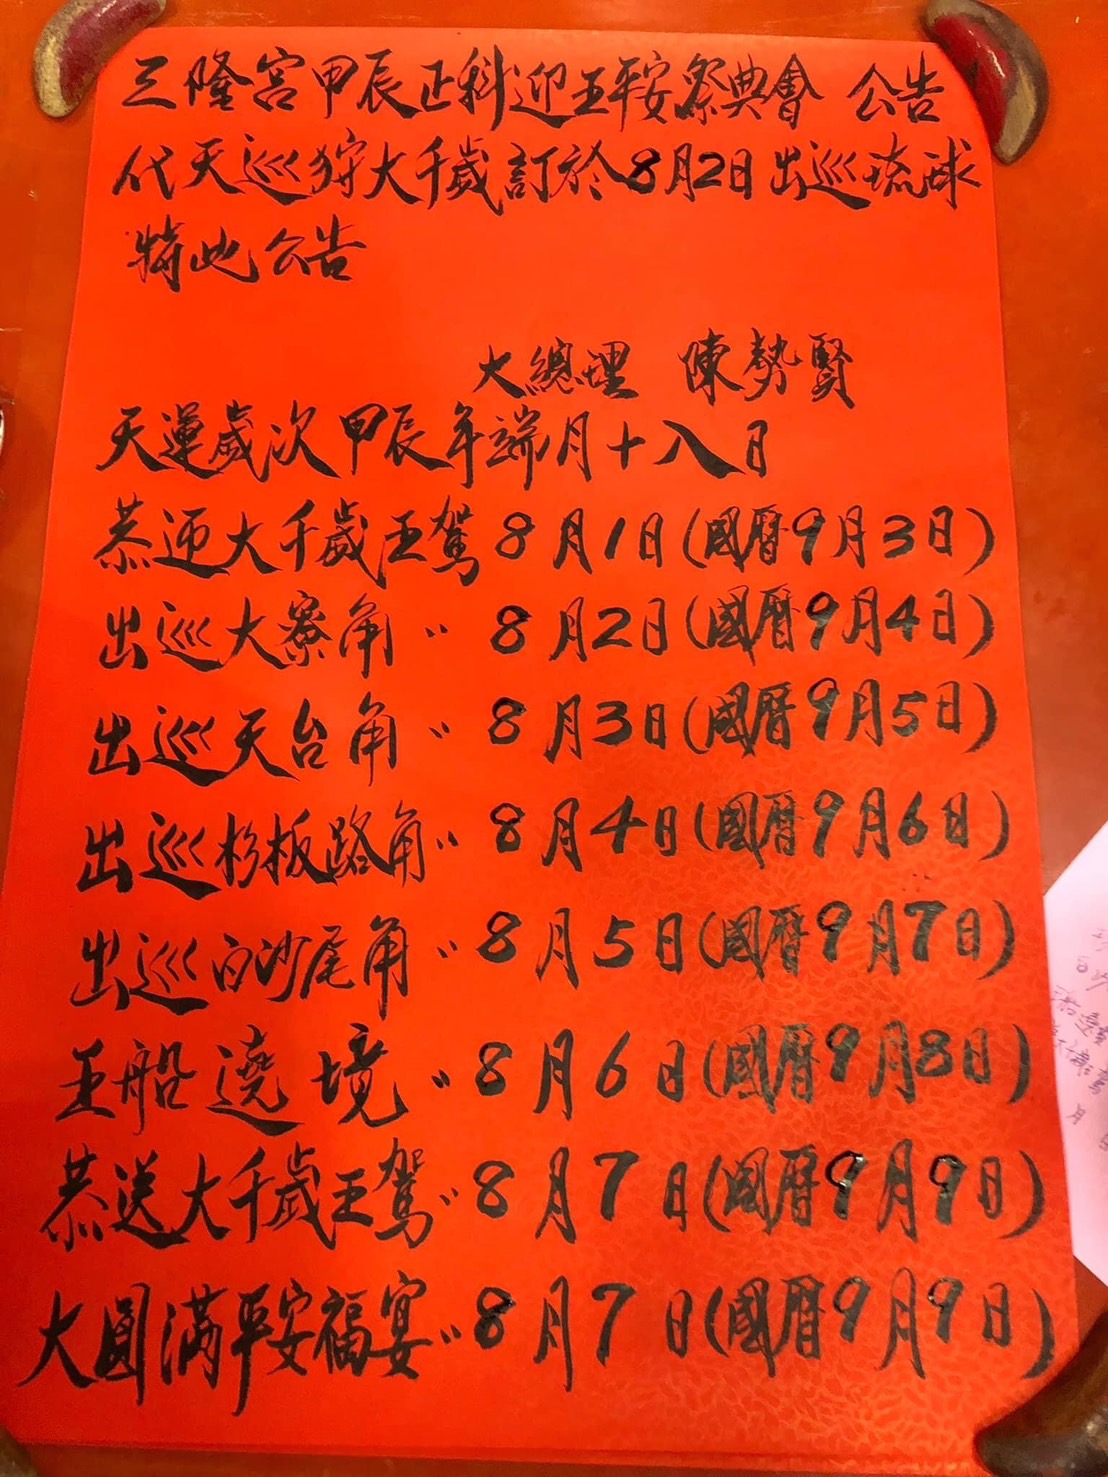 三隆宮甲辰正科迎王平安祭典會 公告
代天巡狩大千歲訂於8月2日出巡琉球
特此公告
大總理 陳勢賢
天運歲次甲辰年端月十八日
恭迎大千歲王駕 8月1日(國曆9月3日)
出巡大寮角〃 8月2日(國曆9月4日)
出巡天台角〃 8月3日(國曆9月5日)
出巡杉板路角〃 8月4日(國曆9月6日)
出巡白沙尾角〃 8月5日(國曆9月7日)
王船遶境〃 8月6日(國曆9月8日)
恭送大千歲王駕〃 8月7日(國曆9月9日)
大圓滿平安福宴〃 8月7日(國曆9月9日)